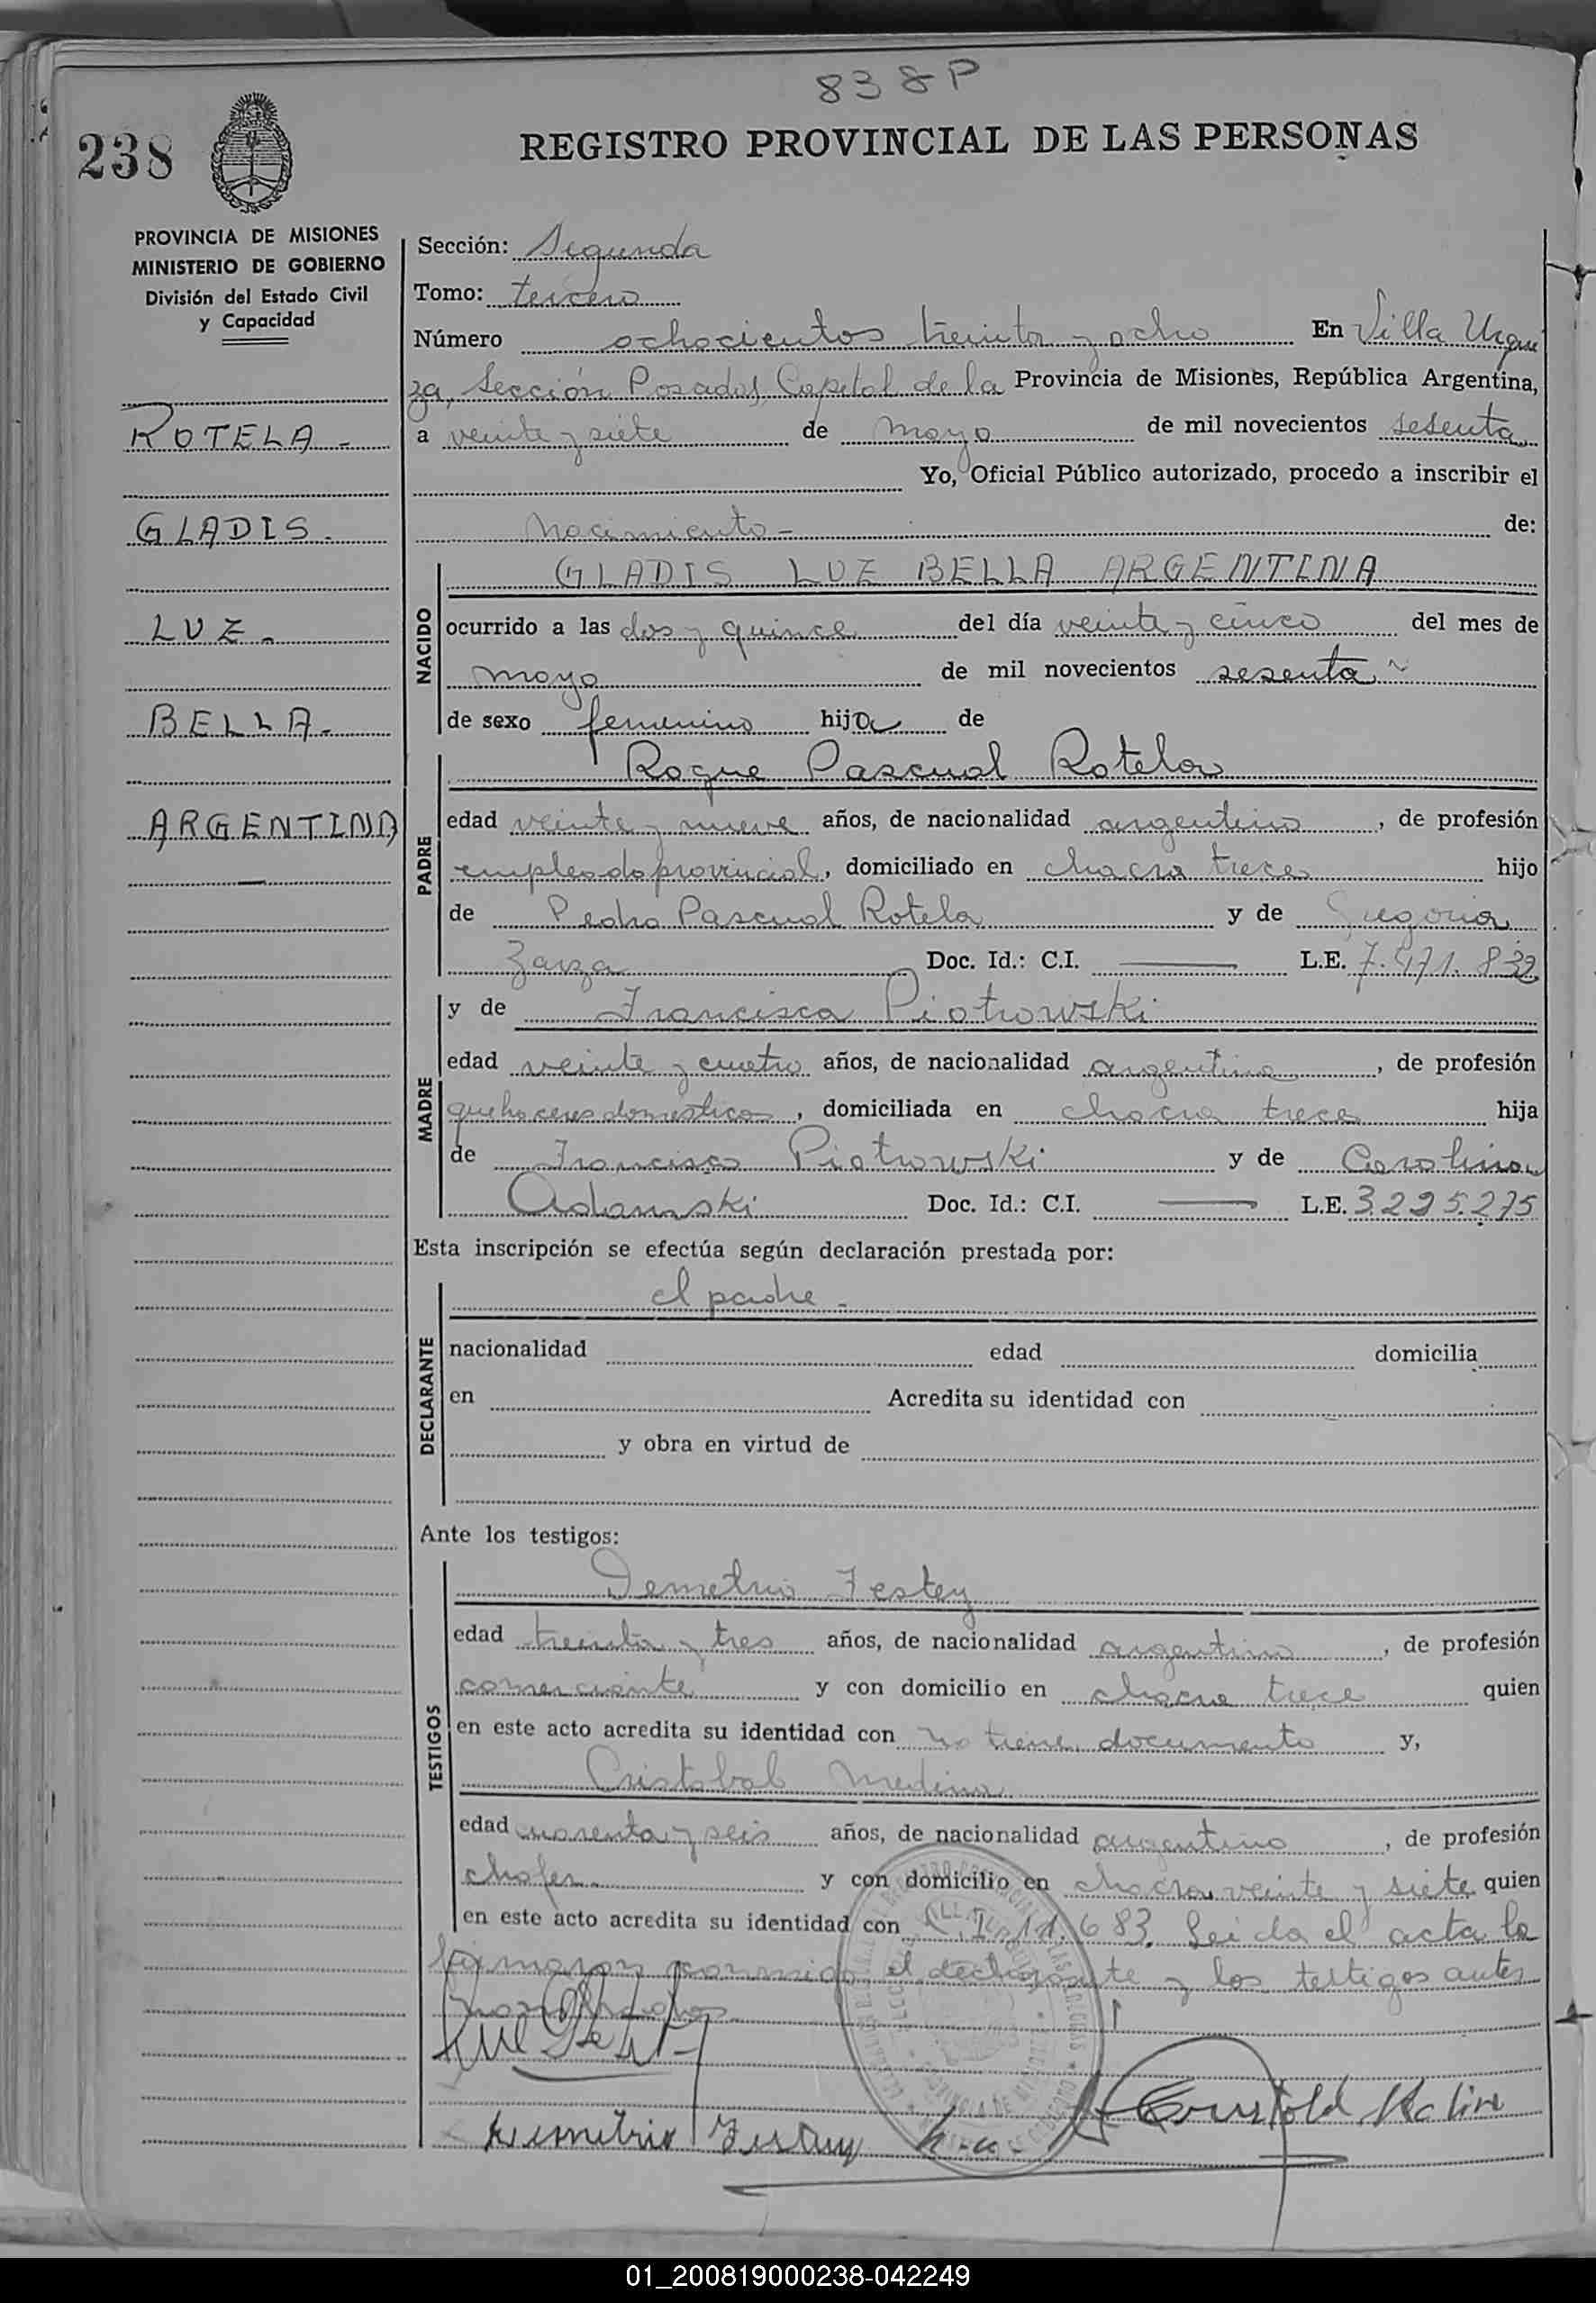 838P
238
REGISTRO PROVINCIAL DE LAS PERSONAS
PROVINCIA DE MISIONES
MINISTERIO DE GOBIERNO
División del Estado Civil
y Capacidad
ROTELA -
GLADIS.
LUZ.
BELLA.
ARGENTINA
Sección: Segunda
Tomo: tercero
Número ochocientos treinta y ocho En Villa Urqui
za, Sección Posadas, Capital de la Provincia de Misiones, República Argentina,
a veinte y siete de mayo de mil novecientos sesenta
Yo, Oficial Público autorizado, procedo a inscribir el
nacimiento - de:
NACIDO
GLADIS LUZ BELLA ARGENTINA
ocurrido a las dos y quince del día veinte y cinco del mes de
mayo de mil novecientos sesenta
de sexo femenino hija de
PADRE
Roque Pascual Rotela
edad veinte y nueve años, de nacionalidad argentino, de profesión
empleado provincial, domiciliado en chacra trece hijo
de Pedro Pascual Rotela y de Gregoria
Zarza Doc. Id.: C.I. — L.E. 7.471.832
MADRE
y de Francisca Piotrowski
edad veinte y cuatro años, de nacionalidad argentina, de profesión
quehaceres domesticos, domiciliada en chacra trece hija
de Francisco Piotrowski y de Carolina
Adamski Doc. Id.: C.I. — L.E. 3.295.275
Esta inscripción se efectúa según declaración prestada por:
DECLARANTE
el padre -
nacionalidad edad domicilia
en Acredita su identidad con
y obra en virtud de
Ante los testigos:
TESTIGOS
Demetrio Festey
edad treinta y tres años, de nacionalidad argentino, de profesión
comerciante y con domicilio en chacra trece quien
en este acto acredita su identidad con no tiene documento y,
Cristobal Medina
edad cuarenta y seis años, de nacionalidad argentino, de profesión
chofer. y con domicilio en chacra veinte y siete quien
en este acto acredita su identidad con C.I. 11.683. Leida el acta la
firmaron conmigo el declarante y los testigos antes
01_200819000238-042249